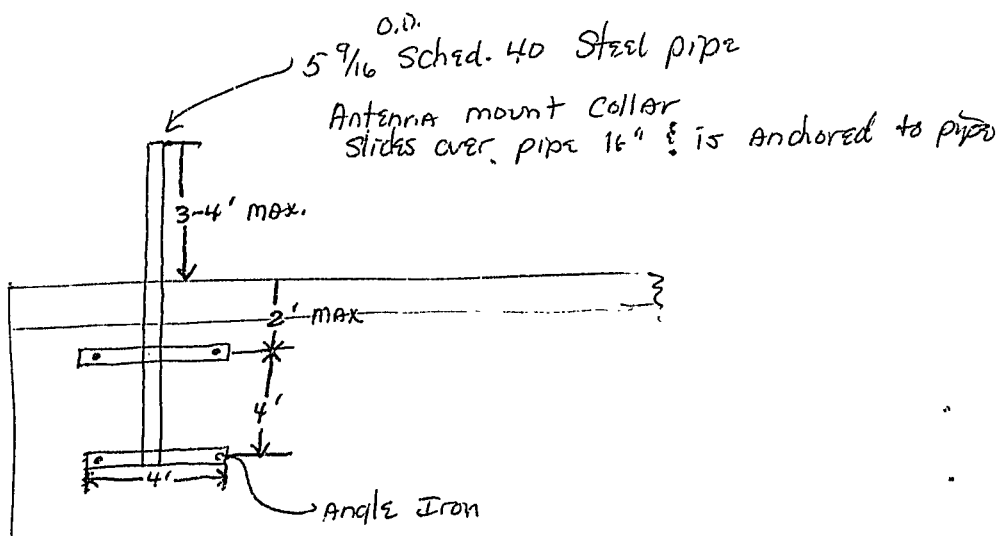 O.D.
5 9/16 Sched. 40 Steel pipe
Antenna mount Collar
slides over pipe 16" & is Anchored to pipe
3-4' MAX.
2' MAX
4'
4'
Angle Iron